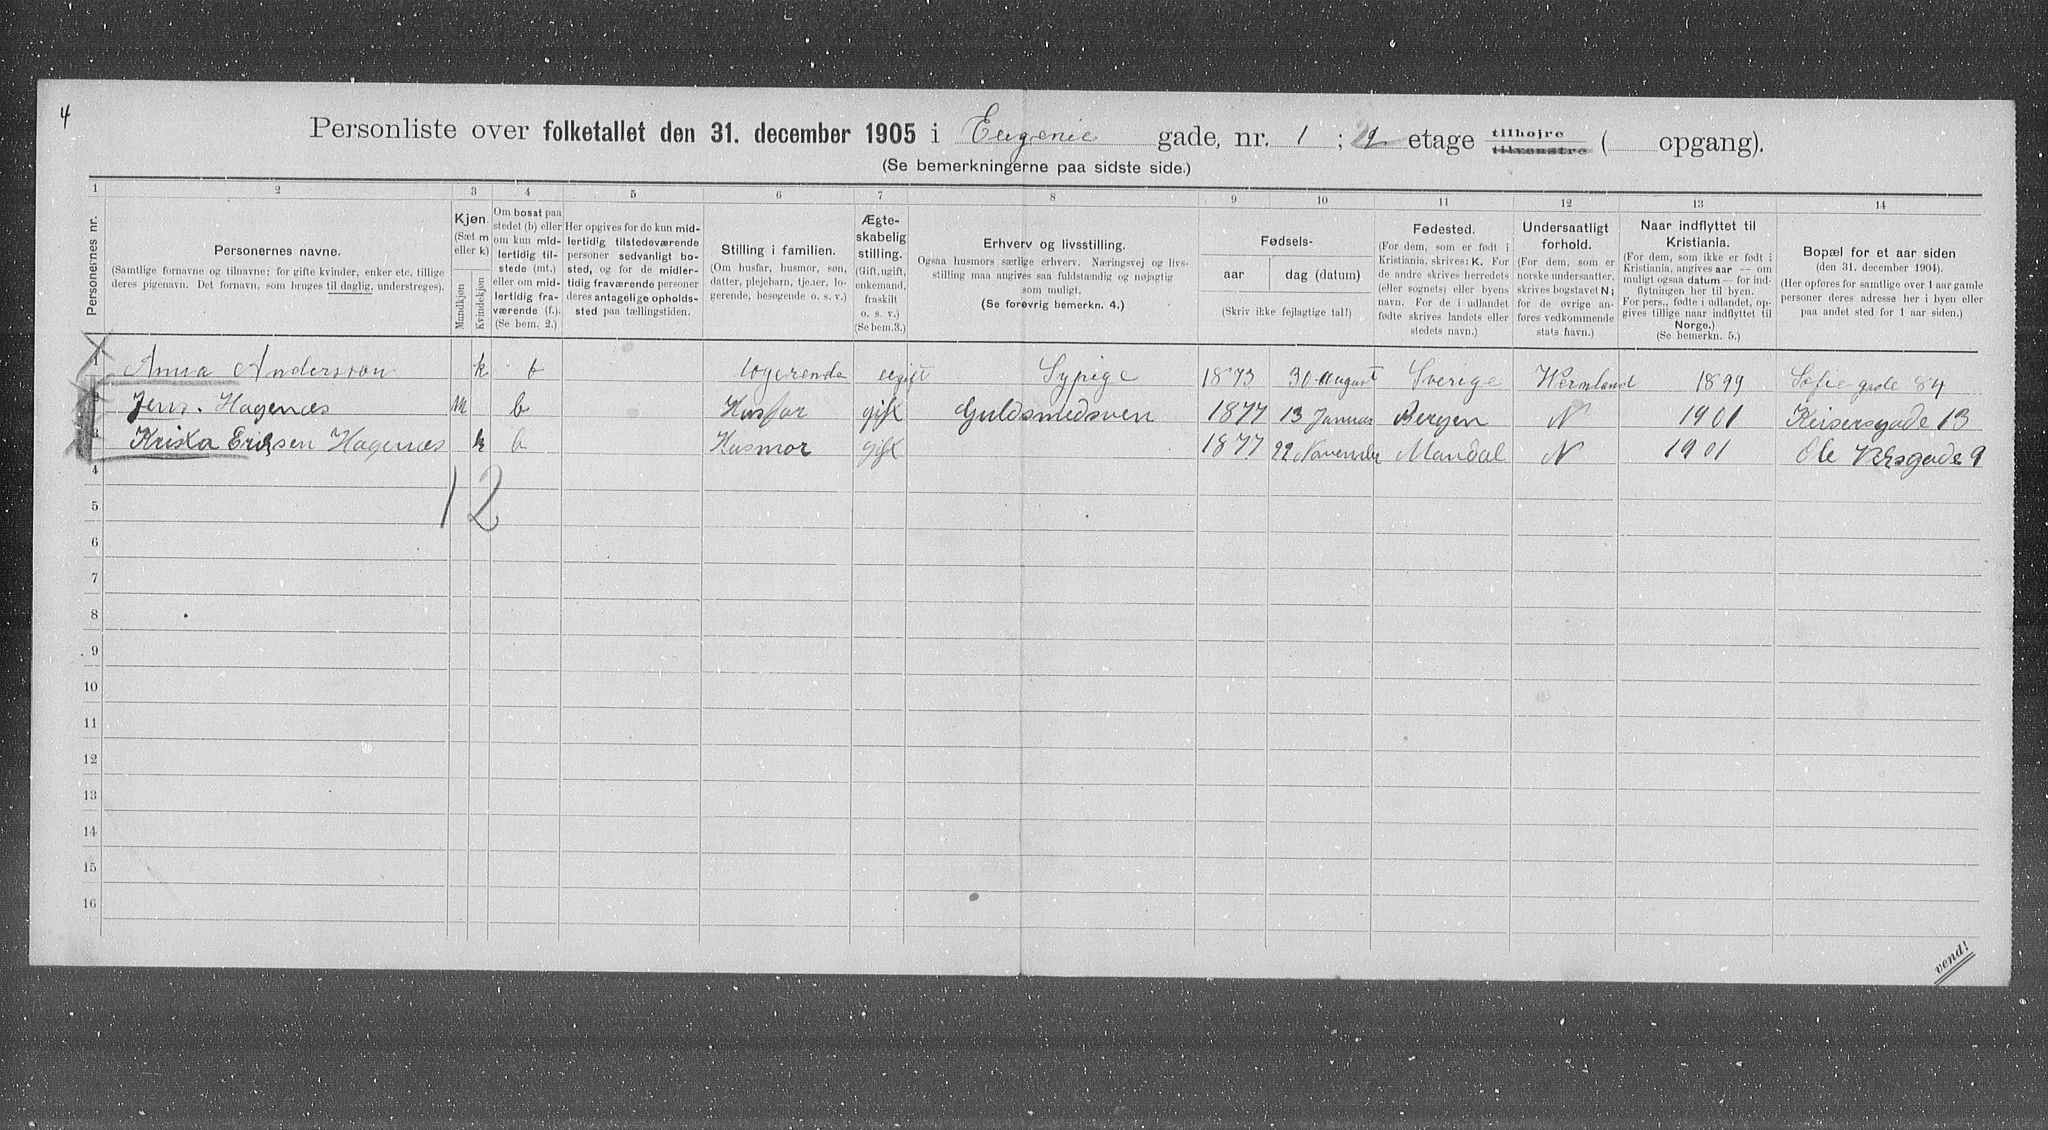 4
Personliste over folketallet den 31. december 1905 i Eugenie gade, nr. 1 ; 2 etage tilhøjre tilvenstre ( opgang).
(Se bemerkningerne paa sidste side.)
1 2 3 4 5 6 7 8 9 10 11 12 13 14
Personernes nr.
Personernes navne.
(Samtlige fornavne og tilnavne; for gifte kvinder, enker etc. tillige
deres pigenavn. Det fornavn, som bruges til daglig, understreges).
Kjøn.
(Sæt m
eller k)
Mandkjøn
Kvindekjøn
Om bosat paa
stedet (b) eller
om kun mid-
lertidig til-
stede (mt.)
eller om mid-
lertidig fra-
værende (f.).
(Se bem. 2.)
Her opgives for de kun mid-
lertidig tilstedeværende
personer sedvanligt bo-
sted, og for de midler-
tidig fraværende personer
deres antagelige opholds-
sted paa tællingstiden.
Stilling i familien.
(Om husfar, husmor, søn,
datter, plejebarn, tjener, lo-
gerende, besøgende o. s. v.)
Ægte-
skabelig
stilling.
(Gift, ugift,
enkemand,
fraskilt
o. s. v.)
(Se bem. 3.)
Erhverv og livsstilling.
Ogsaa husmors særlige erhverv. Næringsvej og livs-
stilling maa angives saa fuldstændig og nøjagtig
som muligt.
(Se forøvrig bemerkn. 4.)
Fødsels-
aar dag (datum)
(Skriv ikke fejlagtige tal!)
Fødested.
(For dem, som er født i
Kristiania, skrives: K. For
de andre skrives herredets
(eller sognets) eller byens
navn. For de i udlandet
fødte skrives landets eller
stedets navn.)
Undersaatligt
forhold.
(For dem, som er
norske undersaatter,
skrives bogstavet N;
for de øvrige an-
føres vedkommende
stats navn.)
Naar indflyttet til
Kristiania.
(For dem, som ikke er født i
Kristiania, angives aar — om
muligt ogsaa datum — for ind-
flytningen her til byen.
For pers., fødte i udlandet, op-
gives tillige naar indflyttet til
Norge.)
(Se bemerkn. 5.)
Bopæl for et aar siden
(den 31. december 1904).
(Her opføres for samtlige over 1 aar gamle
personer deres adresse her i byen eller
paa andet sted for 1 aar siden.)
1 Anna Andersson k b logerende ugift Sypige 1873 30 August Sverige Wermland 1899 Sofiegade 84
2 Jens. Hagenæs m b Husfar gift Guldsmedsven 1877 13 Januar Bergen N 1901 Keisersgade 13
3 Krista Eriksen Hagenæs k b Husmor gift 1877 22 November Mandal N 1901 Ole 9
4
1 2
5
6
7
8
9
10
11
12
13
14
15
16
vend!